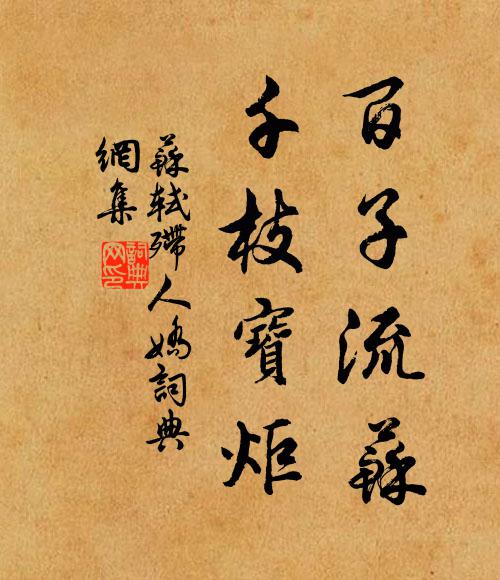 百子流蘇
千枝寶炬
蘇軾殢人嬌詞典
網集
詞典網印